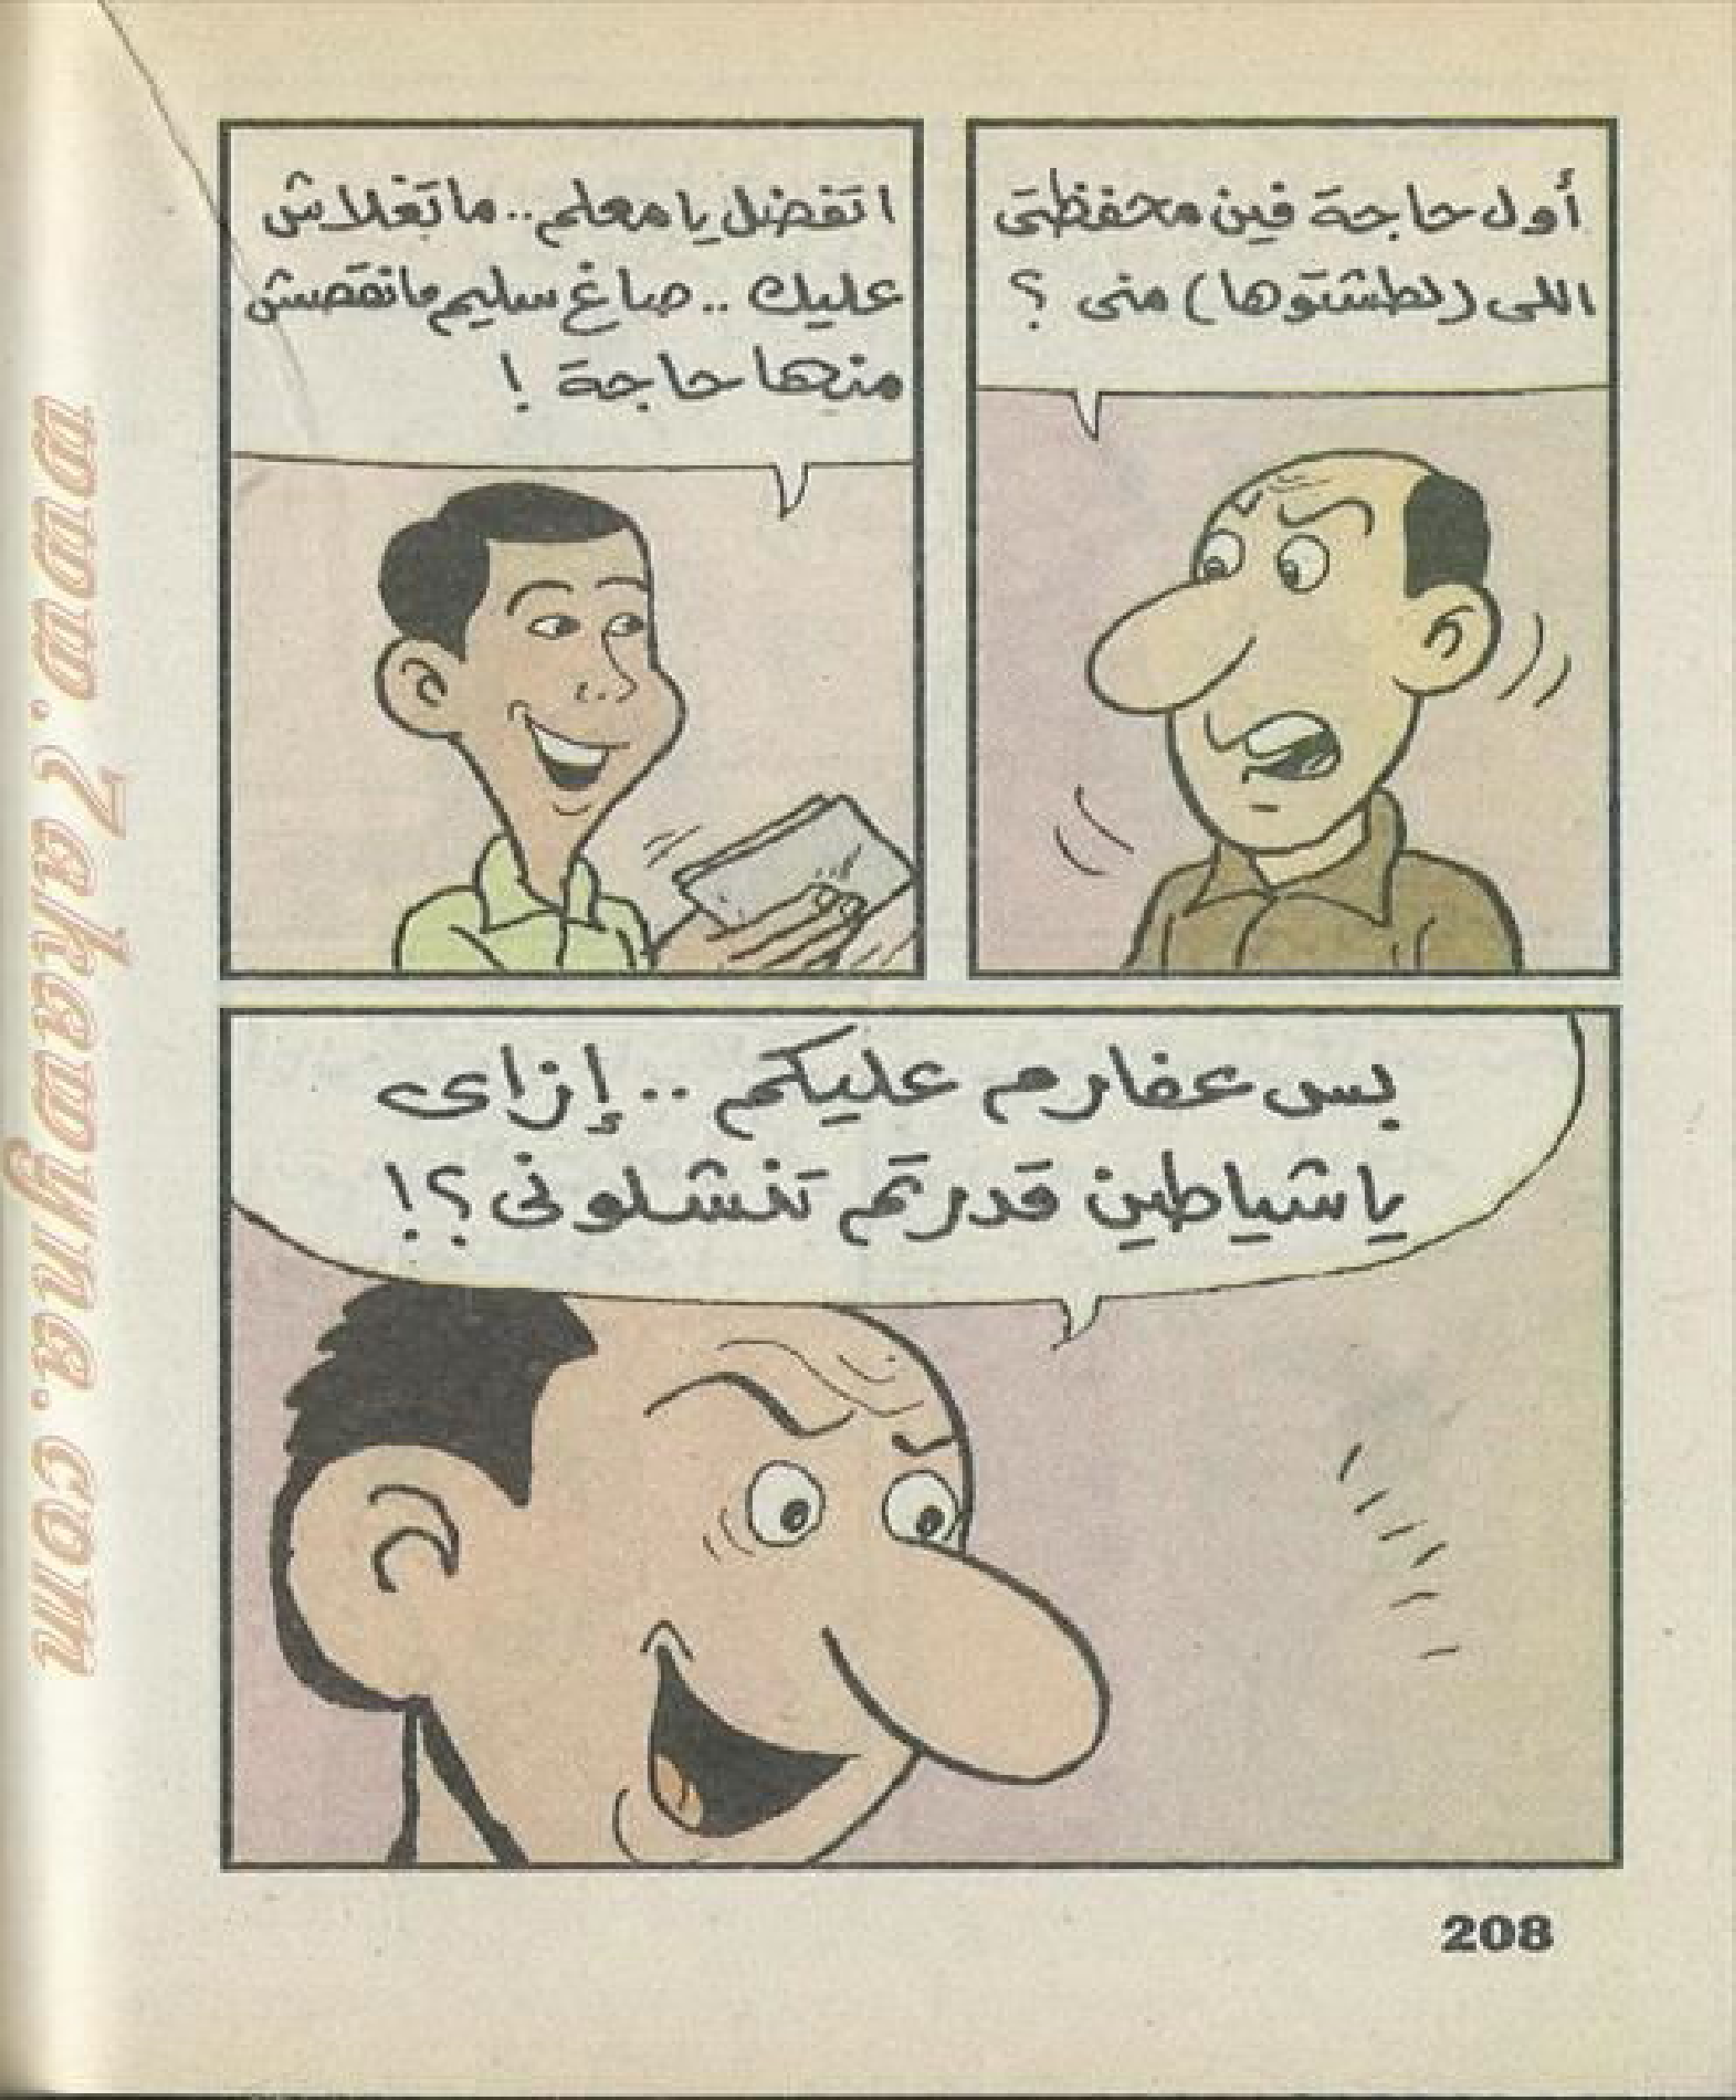 أول حاجة فين محفظتى
اللى (لطشتوها) منى ؟
اتفضل يا معلم .. ما تغلاش
عليك .. صاغ سليم مانقصش
منها حاجة !
بس عفارم عليكم .. إزاى
ياشياطين قدرتم تنشلونى ؟!
208
www.Zakaayuna.com